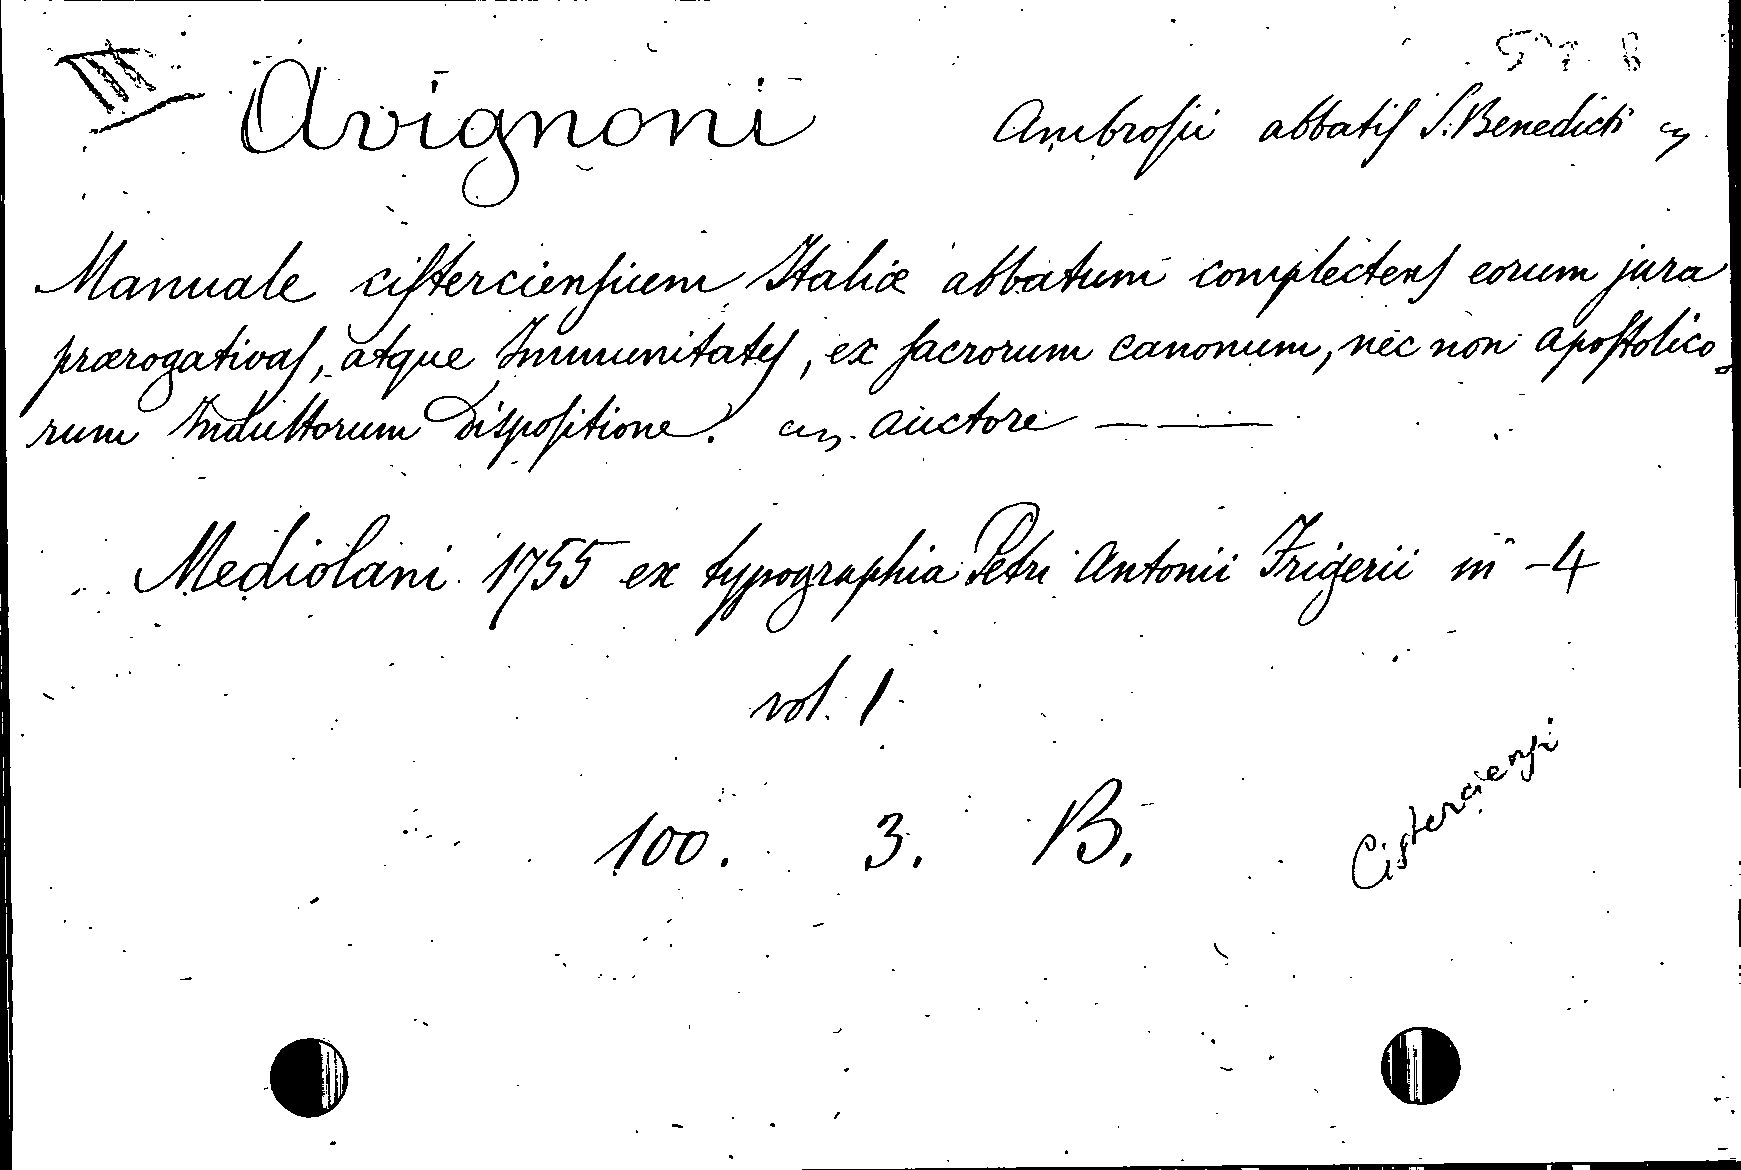 III Avignoni Ambrosii abbatis S. Benedicti
Manuale cisterciensium Italiæ abbatum complectens eorum jura
prærogativas, atque Immunitates, ex sacrorum canonum, nec non apostolico-
rum Indultorum Dispositione. auctore ———
Mediolani 1755 ex typographia Petri Antonii Frigerii in-4
vol. 1
100. 3. B.
Cisterciensi